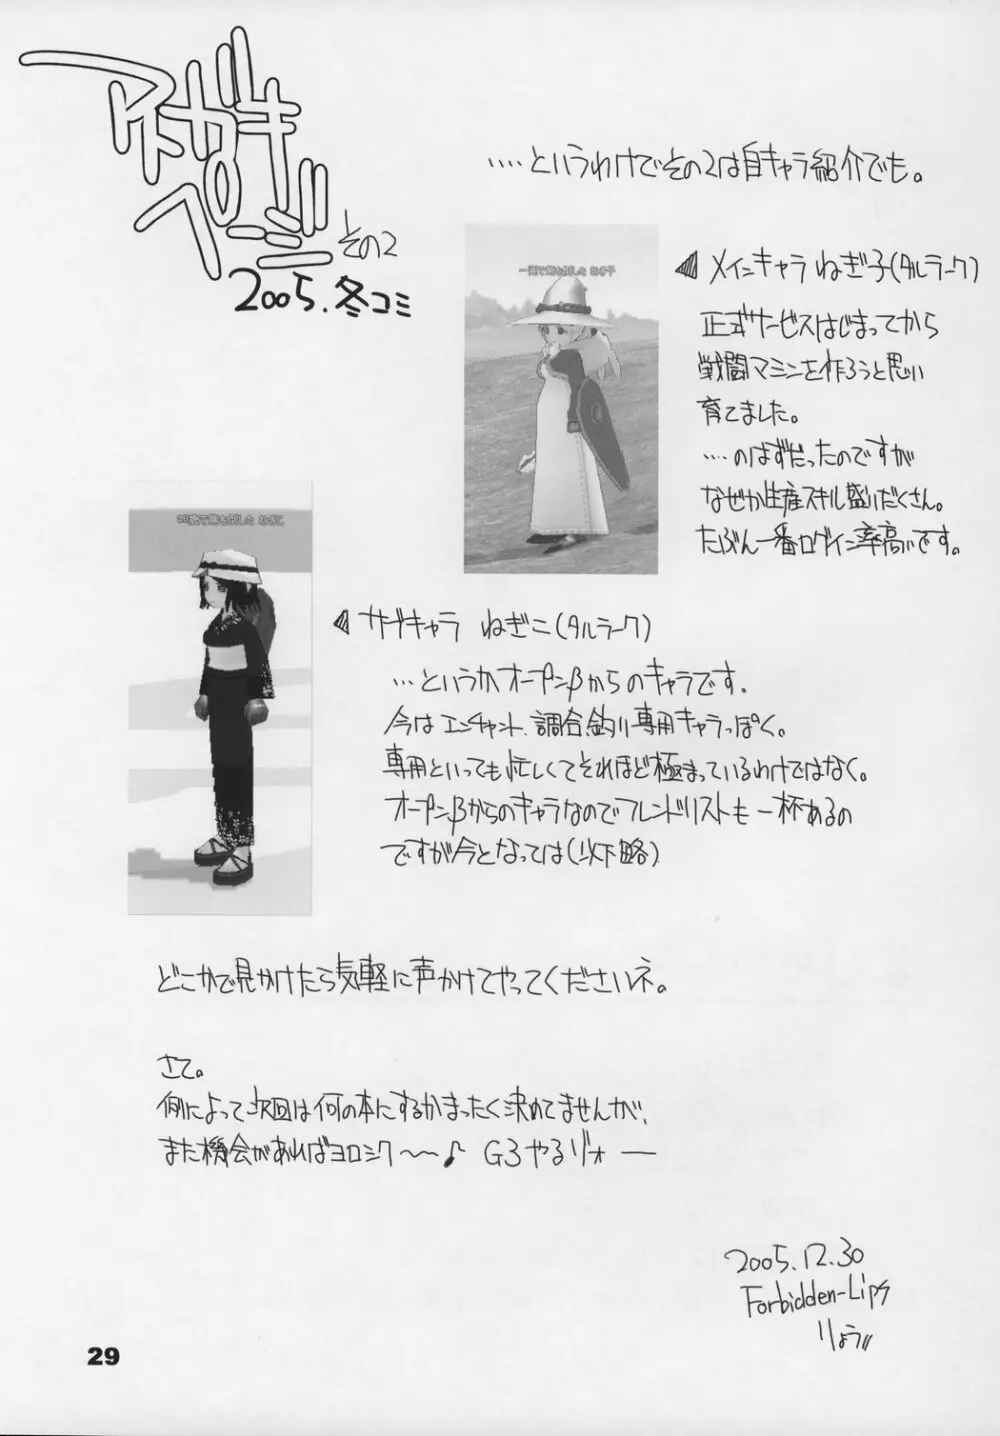 アトガキ
ページ
その2
2005.冬コミ
....というわけでその2は自キャラ紹介でも。
メインキャラ ねぎ子(タルラーク)
正式サービスはじまってから
戦闘マシンを作ろうと思い
育てました。
....のはずだったのですが
なぜか生産スキル盛りだくさん。
たぶん一番ログイン率高いです。
サブキャラ ねぎこ(タルラーク)
...というかオープンβからのキャラです.
今はエンチャント、調合、釣り専用キャラっぽく。
専用といっても忙しくてそれほど極まっているわけではなく。
オープンβからのキャラなのでフレンドリストも一杯あるの
ですが今となっては(以下略)
どこかで見かけたら気軽に声かけてやってくださいネ。
さて。
例によって次回は何の本にするかまったく決めてませんが、
また機会があればヨロシク〜〜♪ G3やるゾォー
2005.12.30
Forbidden-Lips
りょう
29